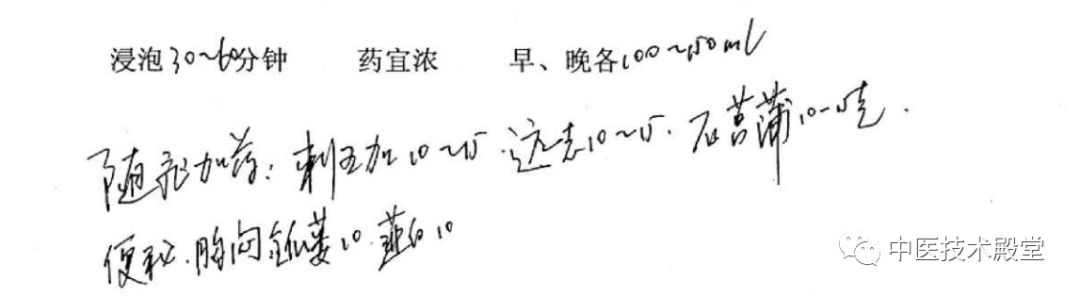 浸泡30~60分钟 药宜浓 早、晚各100~150ml
随症加药:刺五加10~15.远志10~15.石菖蒲10-15克.
便秘.胸闷全瓜蒌10.薤白10
中医技术殿堂